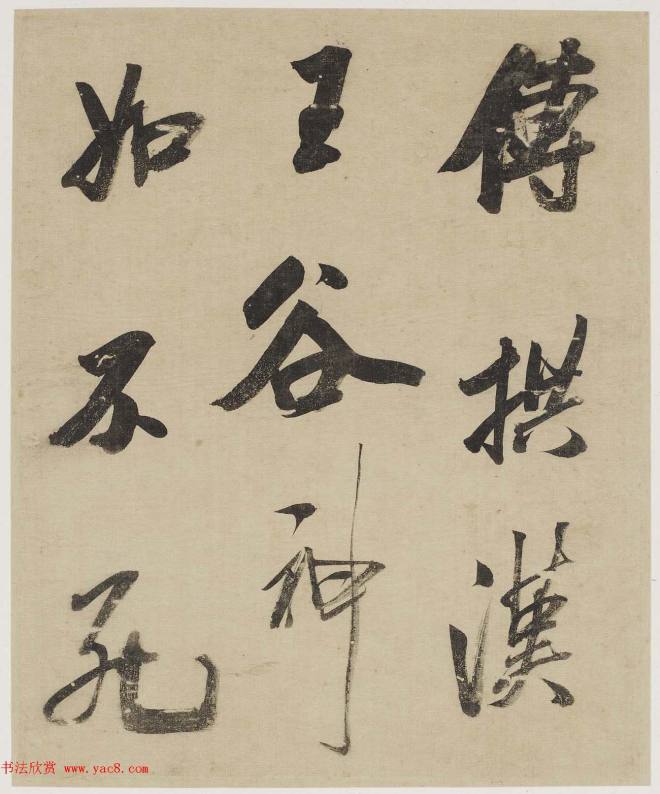 傳拱漢
王谷神
如不死
书法欣赏 www.yac8.com